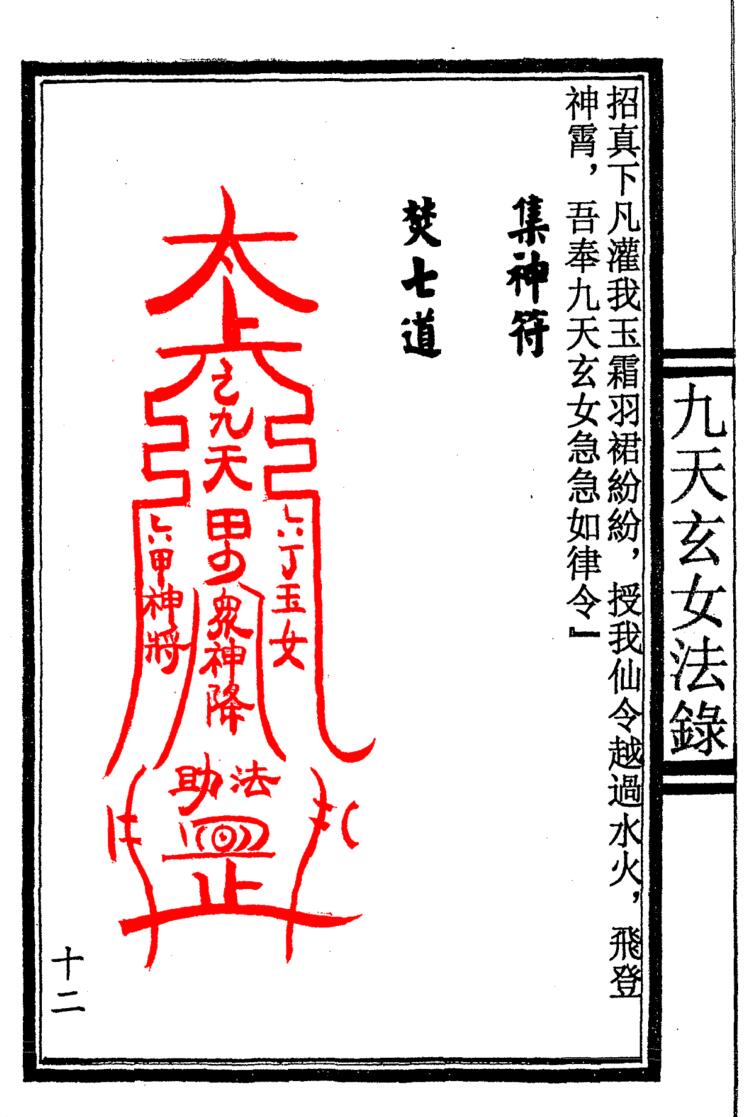 九天玄女法錄
招真下凡灌我玉霜羽裙紛紛，授我仙令越過水火，飛登
神霄，吾奉九天玄女急急如律令』
集神符
焚七道
太上
之九天
六丁玉女
六甲神將
眾神降
法助
止
十二